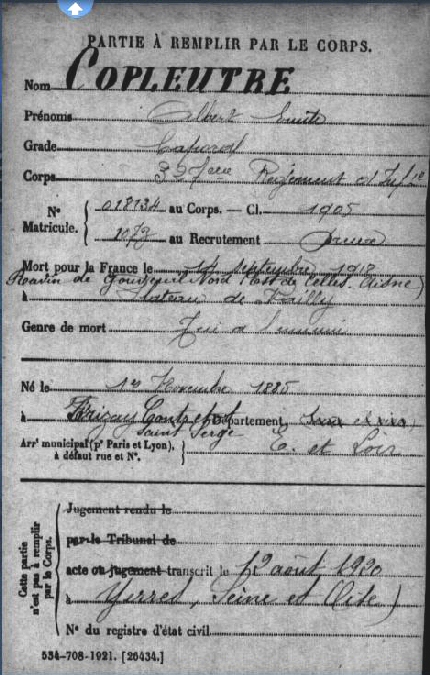 PARTIE À REMPLIR PAR LE CORPS.
Nom COPLEUTRE
Prénoms Albert Emile
Grade Caporal
Corps Régiment d'Inf
N° Matricule. 018134 au Corps. — Cl. 1905
2079 au Recrutement Dreux
Mort pour la France le 14 septembre 1918
Ravin de Nord Est de Celles Aisne)
à Plateau de
Genre de mort Tué à l'ennemi
Né le 1er Novembre 1885
à Département
Saint Serge E. et Loir
Arrt municipal (pr Paris et Lyon), à défaut rue et N°.
Cette partie n'est pas à remplir par le Corps.
Jugement rendu le
par le Tribunal de
acte ou jugement transcrit le 12 août 1920
à Yerres, Seine et Oise)
N° du registre d'état civil
534-708-1921. [26434.]